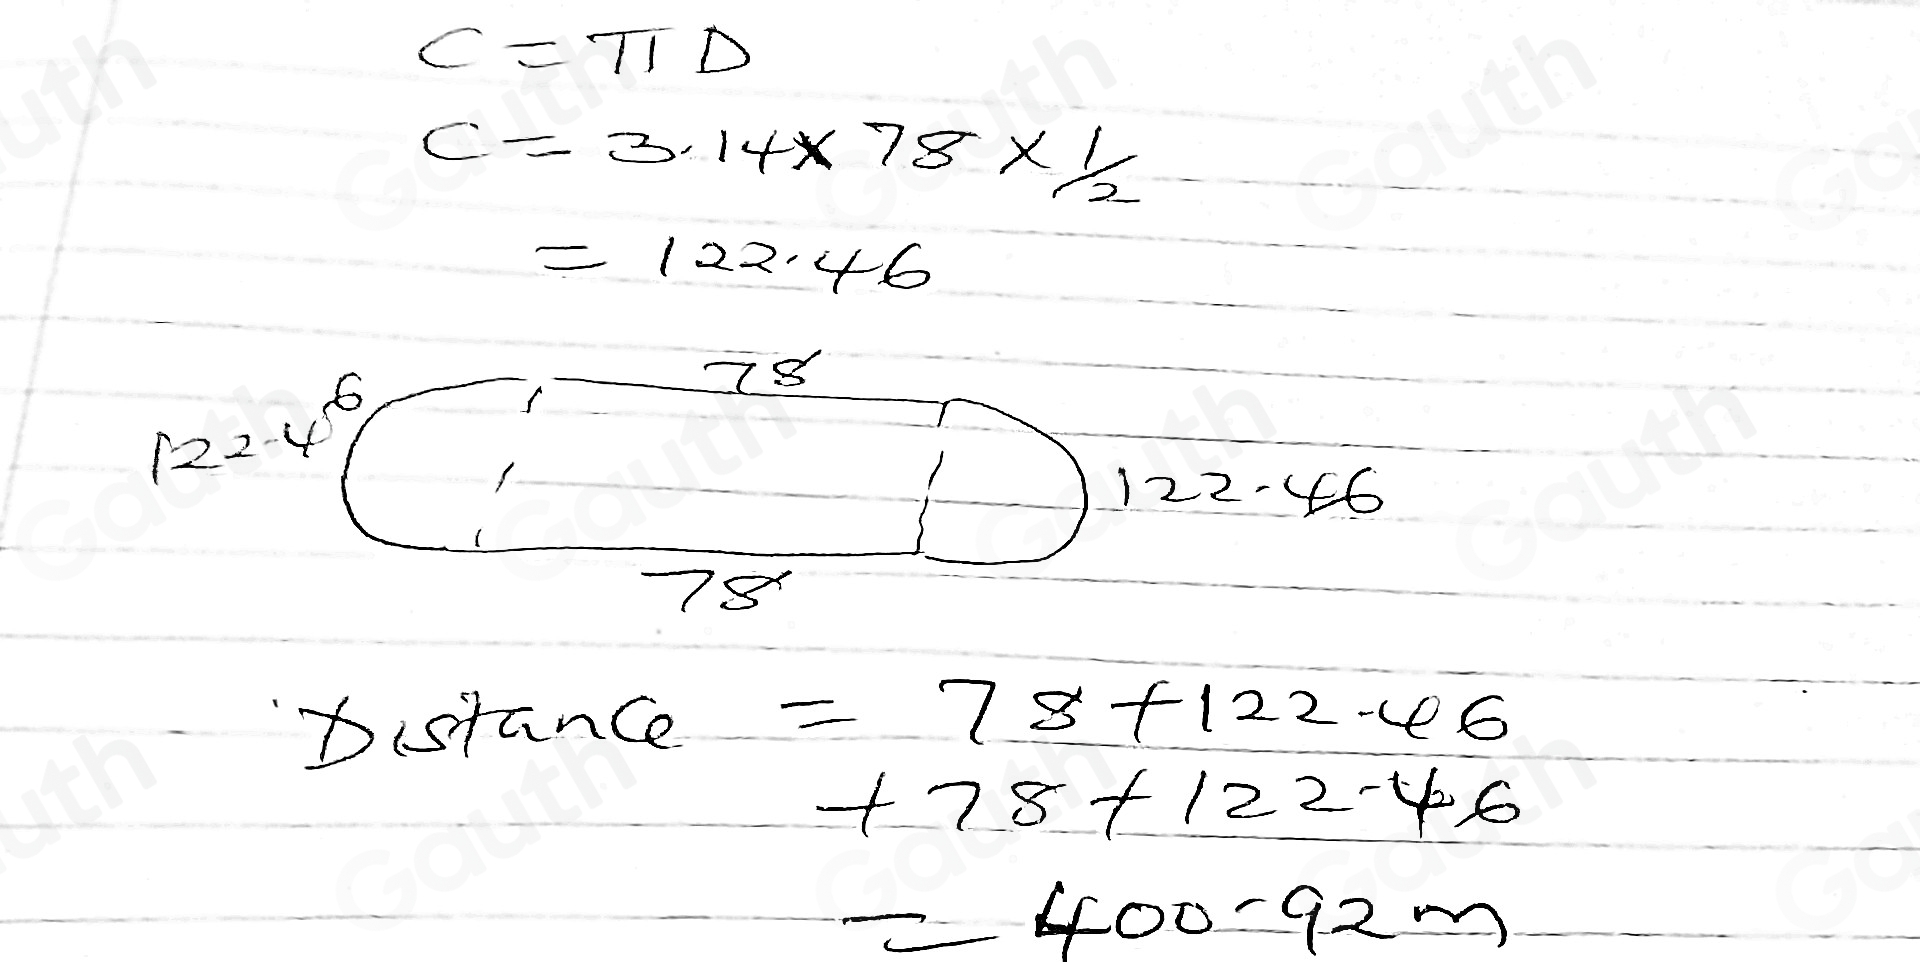 C = π D
C = 3.14 × 78 × 1/2
= 122.46
78
122.46
122.46
78
Distance = 78 + 122.46
+ 78 + 122.46
= 400.92m
Gauth